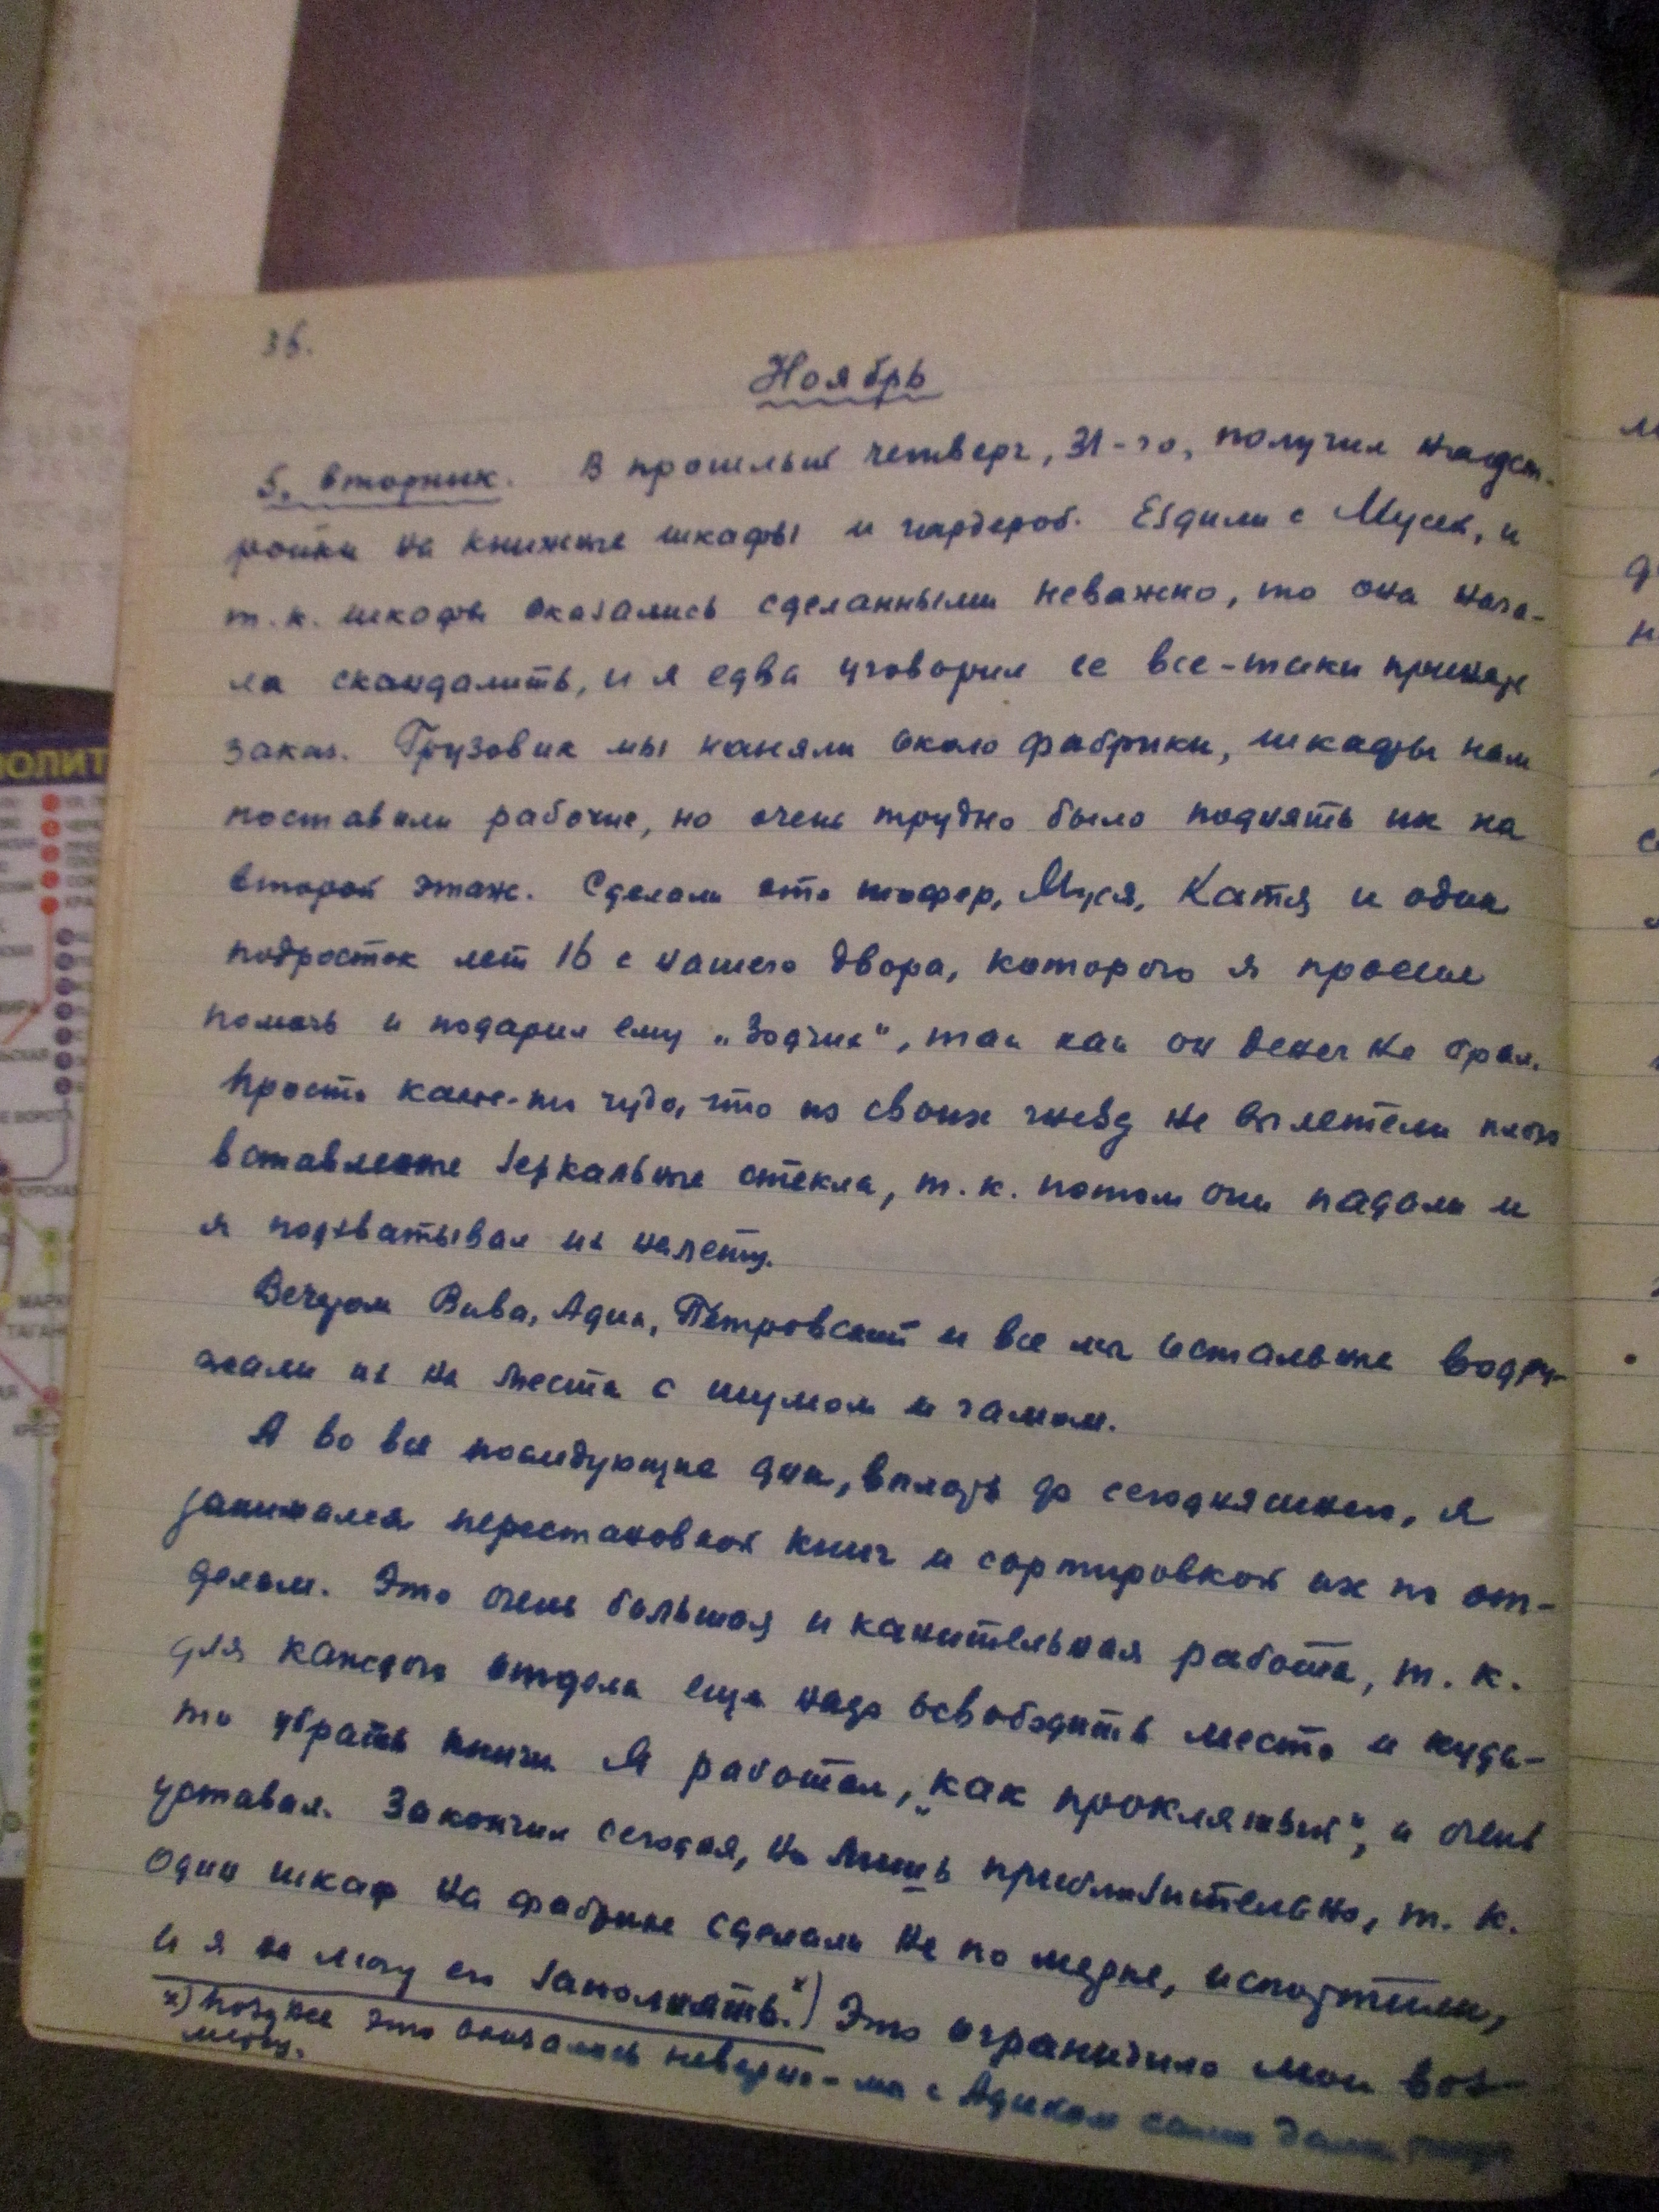 36.
Ноябрь
5. вторник. В прошлый четверг, 31-го, получил надст-
ройки на книжные шкафы и гардероб. Ездили с Мусей, и
т.к. шкафы оказались сделанными неважно, то она нача-
ла скандалить, и я едва уговорил ее все-таки принять
заказ. Грузовик мы наняли около фабрики, шкафы нам
поставили рабочие, но очень трудно было поднять их на
второй этаж. Сделали это шофер, Муся, Катя и один
подросток лет 16 с нашего двора, которого я просил
помочь и подарил ему „Зодчих“, так как он денег не брал.
Просто какое-то чудо, что из своих гнезд не вылетели плохо
вставленные зеркальные стекла, т.к. потом они падали и
я подхватывал их налету.
Вечером Вива, Адик, Петровский и все мы остальные водру-
жали их на места с шумом и гамом.
А во все последующие дни, вплоть до сегодняшнего, я
занимался перестановкой книг и сортировкой их по от-
делам. Это очень большая и канительная работа, т.к.
для каждого отдела еще надо освободить место и куда-
то убрать книги. Я работал, „как проклятый“, и очень
уставал. Закончил сегодня, но лишь приблизительно, т.к.
один шкаф на фабрике сделали не по мерке, испортили,
и я не могу его заполнять.х) Это ограничило мои воз-
х) Позднее это оказалось неверно - мы с Адиком сами дали
мерку.
ПОЛИТ
КУРСКАЯ
МАРК
ТАГАН